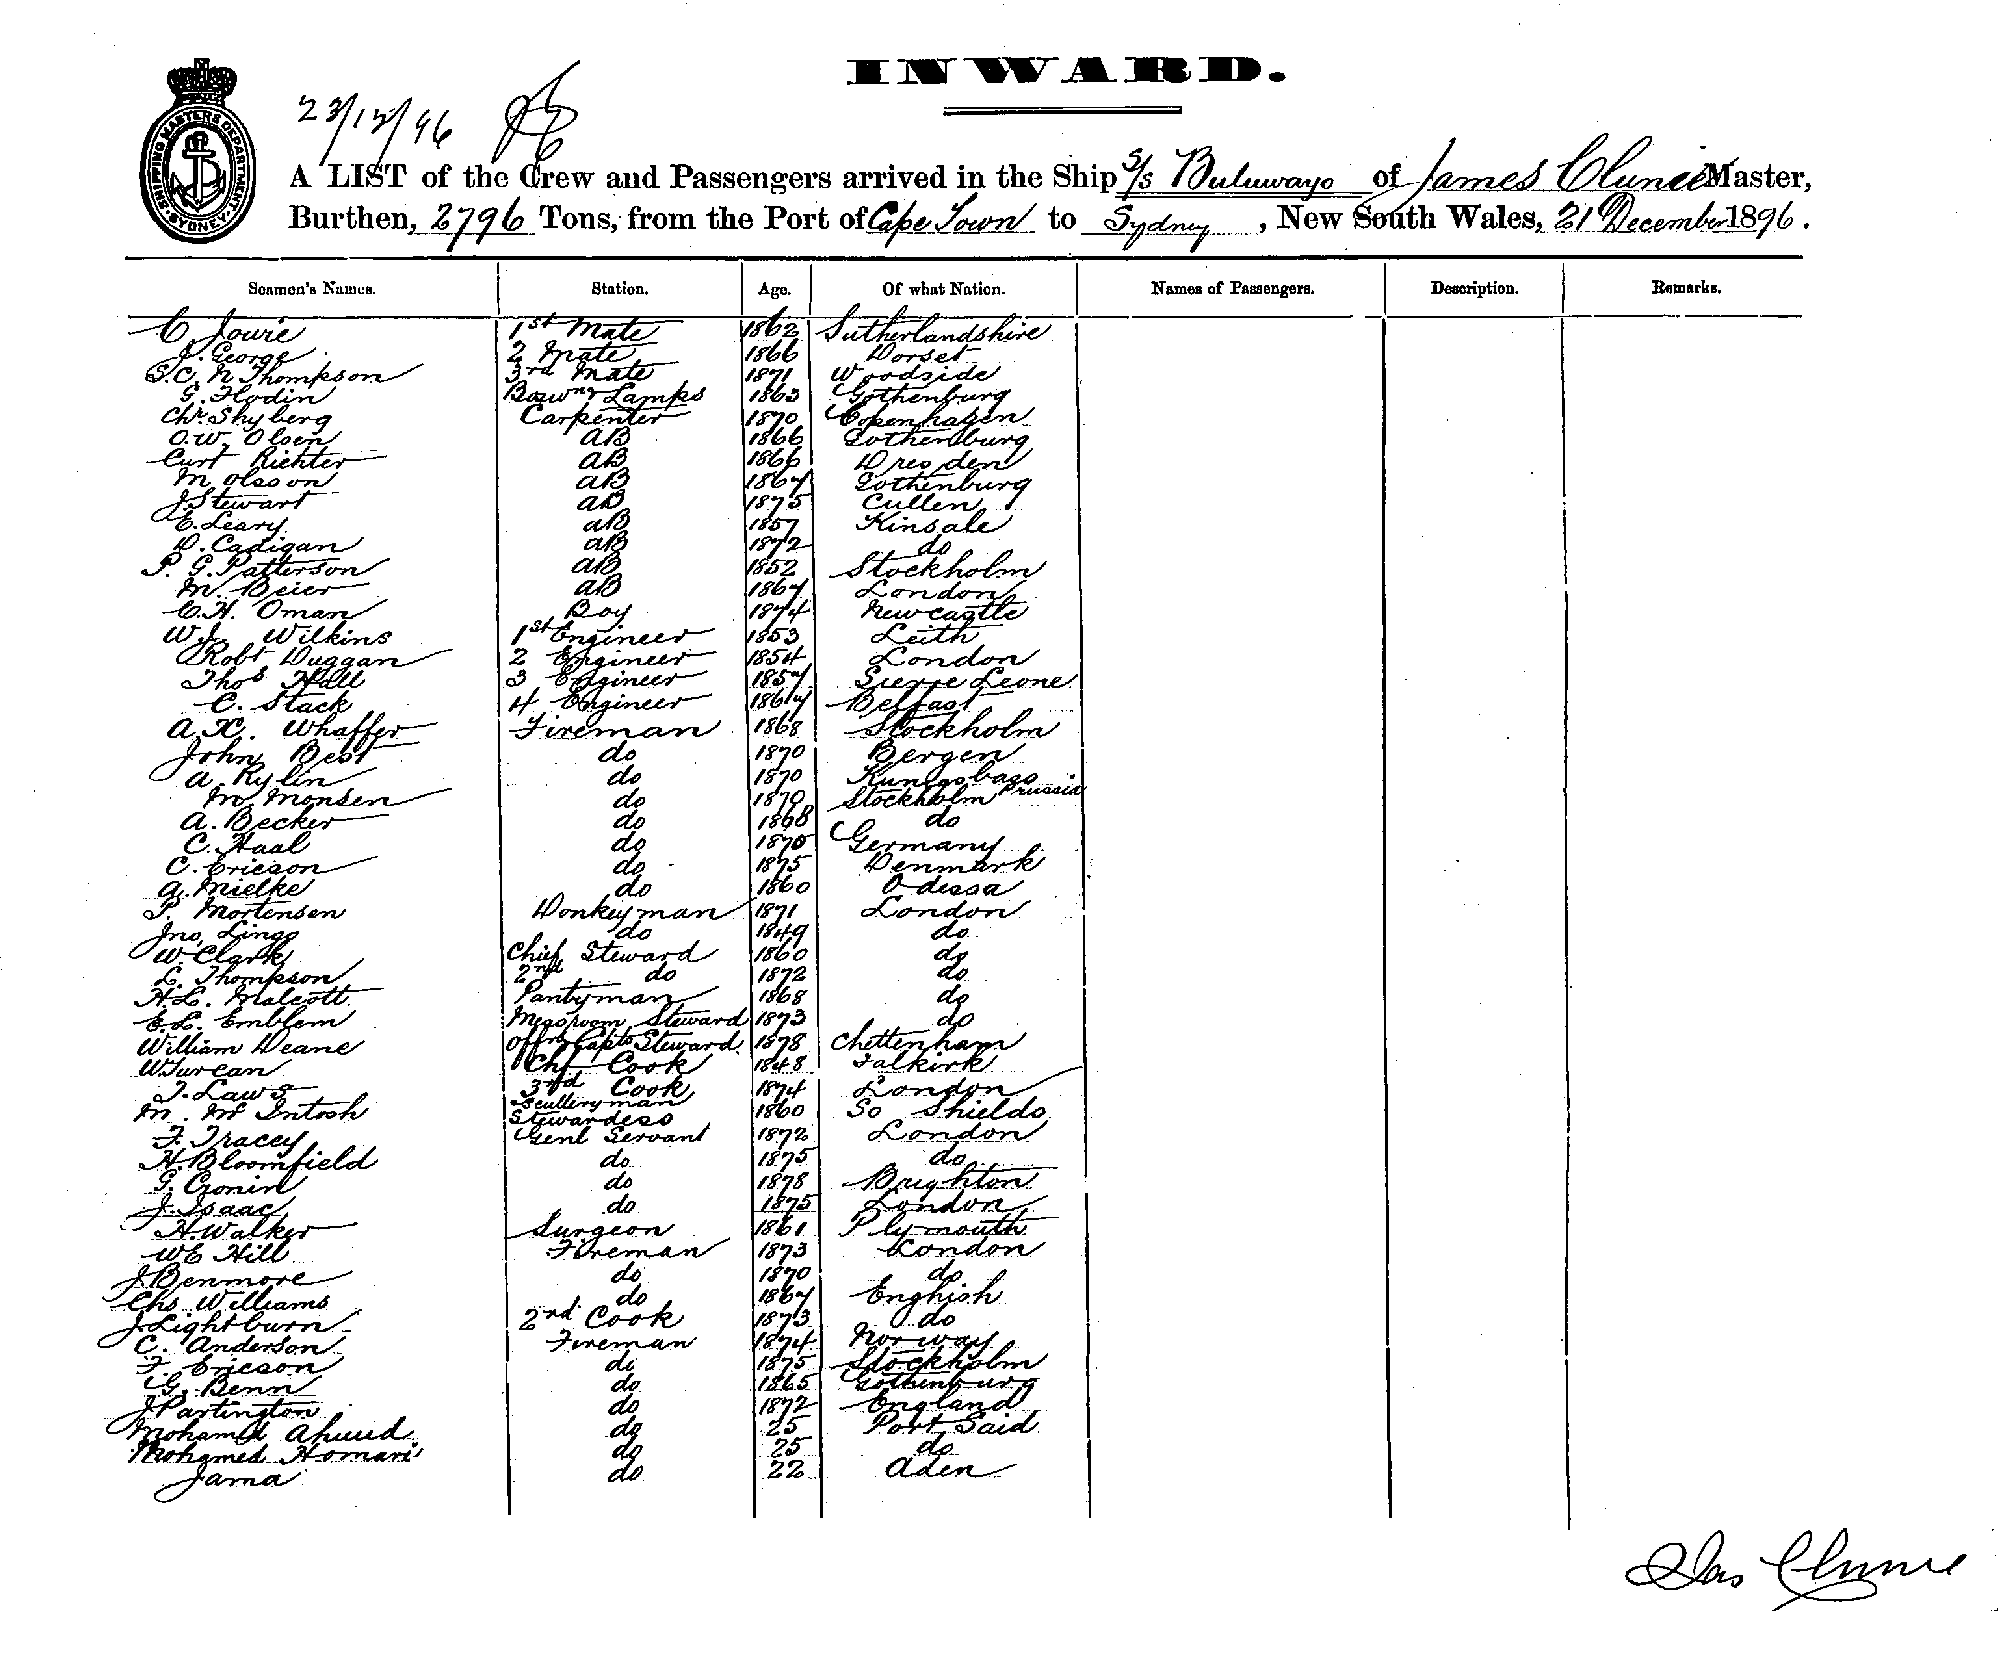 INWARD.
23/12/96
SHIPPING MASTERS DEPARTMENT SYDNEY
A LIST of the Crew and Passengers arrived in the Ship S/S Buluwayo of James Clunie Master,
Burthen, 2796 Tons, from the Port of Cape Town to Sydney, New South Wales, 21 December 1896.
Seamen's Names. Station. Age. Of what Nation. Names of Passengers. Description. Remarks.
C Jowie 1st Mate 1862 Sutherlandshire
J. George 2 Mate 1866 Dorset
N Thompson 3rd Mate 1871 Woodside
G. Flodin Bosw Lamps 1863 Gothenburg
Chr Shyberg Carpenter 1870 Copenhagen
O.W. Olsen AB 1866 Gothenburg
Curt Richter AB 1866 Dresden
M Olsson AB 1867 Gothenburg
J Stewart AB 1875 Cullen
C. Leary AB 1857 Kinsale
D. Cadigan AB 1872 do
P. G. Patterson AB 1852 Stockholm
M. Beier AB 1867 London
C.H. Oman Boy 1874 Newcastle
W.J. Wilkins 1st Engineer 1853 Leith
Robt Duggan 2 Engineer 1854 London
Thos Hall 3 Engineer 1857 Sierre Leone
C. Stack 4 Engineer 1867 Belfast
A. K. Whaffer Fireman 1868 Stockholm
John Best do 1870 Bergen
A. Rylin do 1870 Kungsbago Prussia
M. Monsen do 1870 Stockholm
A. Becker do 1868 do
C. Haal do 1870 Germany
C. Ericson do 1875 Denmark
A. Mielke do 1860 Odessa
P. Mortensen Donkeyman 1871 London
Jno Lingo do 1849 do
W. Clark Chief Steward 1860 do
L. Thompson 2nd do 1872 do
H.L. Malcott Pantryman 1868 do
E.L. Emblem Messroom Steward 1873 do
William Deane Offrs Capts Steward 1878 Chettenham
W. Turcan Chf Cook 1848 Falkirk
J. Laws 3rd Cook Scullery man 1874 London
M. Mc Intosh Stewardess 1860 So Shields
F. Tracey Genl Servant 1872 London
H. Bloomfield do 1875 do
G. Cronin do 1878 Brighton
J. Isaac do 1875 London
H. Walker Surgeon 1861 Plymouth
WE Hill Fireman 1873 London
J. Benmore do 1870 do
Chs Williams do 1867 Enghish
J. Lightburn 2nd Cook 1873 do
C. Anderson Fireman 1874 Norway
F. Ericson do 1875 Stockholm
G. Benn do 1865 Gothenburg
J Partington do 1872 England
Mohamed Ahmed do 25 Port Said
Mohamed Homari do 25 do
Jama do 22 Aden
Jas Clunie